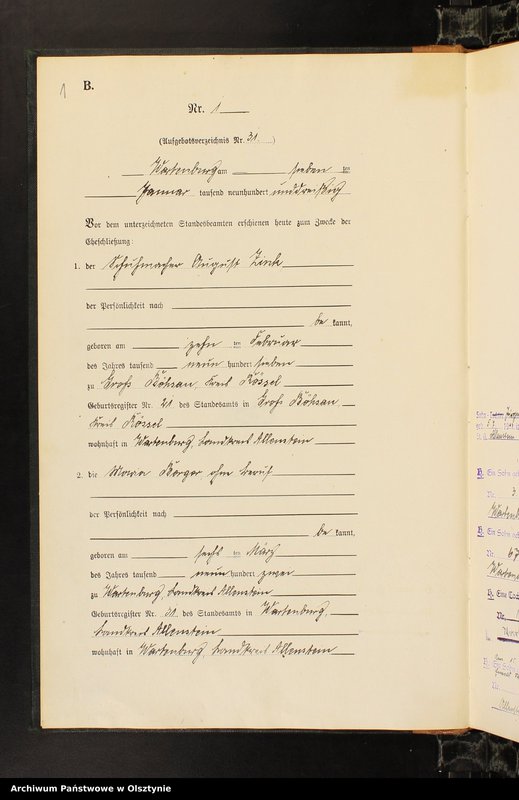 1
B.
Nr. 1
(Aufgebotsverzeichnis Nr. 31.)
Wartenburg am sieben ten
Januar tausend neunhundert unddreißig
Vor dem unterzeichneten Standesbeamten erschienen heute zum Zwecke der
Eheschließung:
1. der Schuhmacher August Zink
der Persönlichkeit nach
be kannt,
geboren am zehn ten Februar
des Jahres tausend neun hundert sieben
zu Groß Bößau, Kreis Rössel
Geburtsregister Nr. 21 des Standesamts in Groß Bößau
Kreis Rössel
wohnhaft in Wartenburg, Landkreis Allenstein
2. die Maria ohne Beruf
der Persönlichkeit nach
be kannt,
geboren am sechs ten März
des Jahres tausend neun hundert zwei
zu Wartenburg, Landkreis Allenstein
Geburtsregister Nr. 31 des Standesamts in Wartenburg,
Landkreis Allenstein
wohnhaft in Wartenburg, Landkreis Allenstein
Archiwum Państwowe w Olsztynie